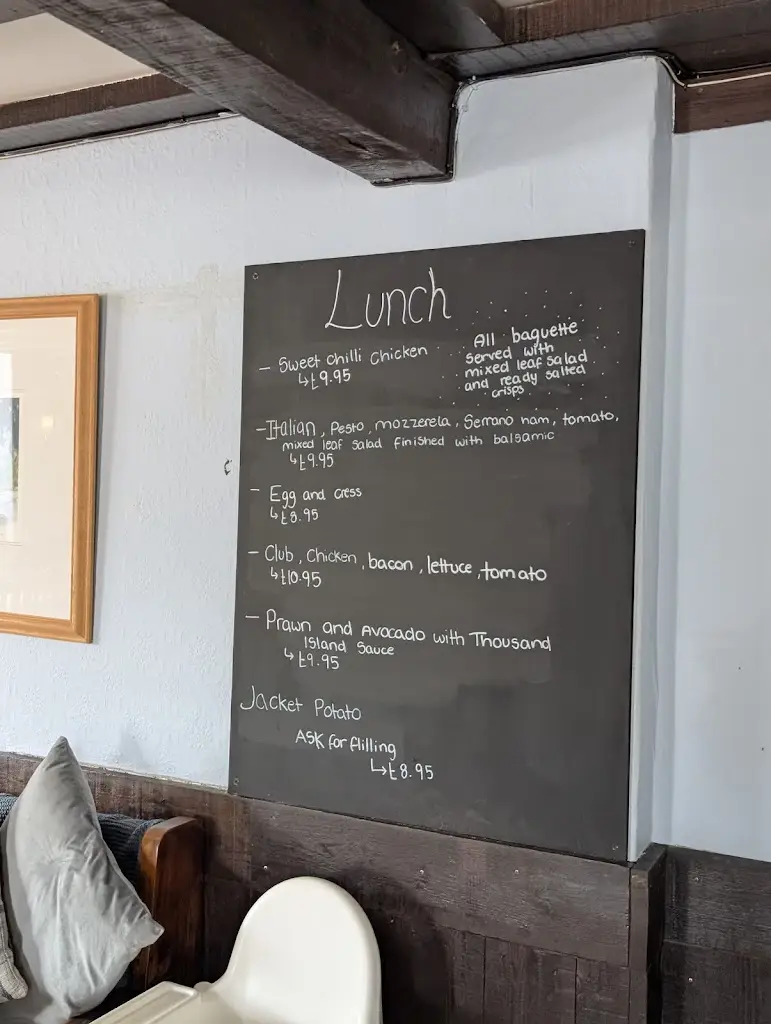 Lunch
All baguette
served with
mixed leaf salad
and ready salted
crisps
- Sweet chilli chicken
↳£9.95
- Italian, Pesto, mozzerela, Serrano ham, tomato,
mixed leaf salad finished with balsamic
↳£9.95
- Egg and cress
↳£8.95
- Club, Chicken, bacon, lettuce, tomato
↳£10.95
- Prawn and Avocado with Thousand
Island Sauce
↳£9.95
Jacket Potato
ASK for flilling
↳£8.95